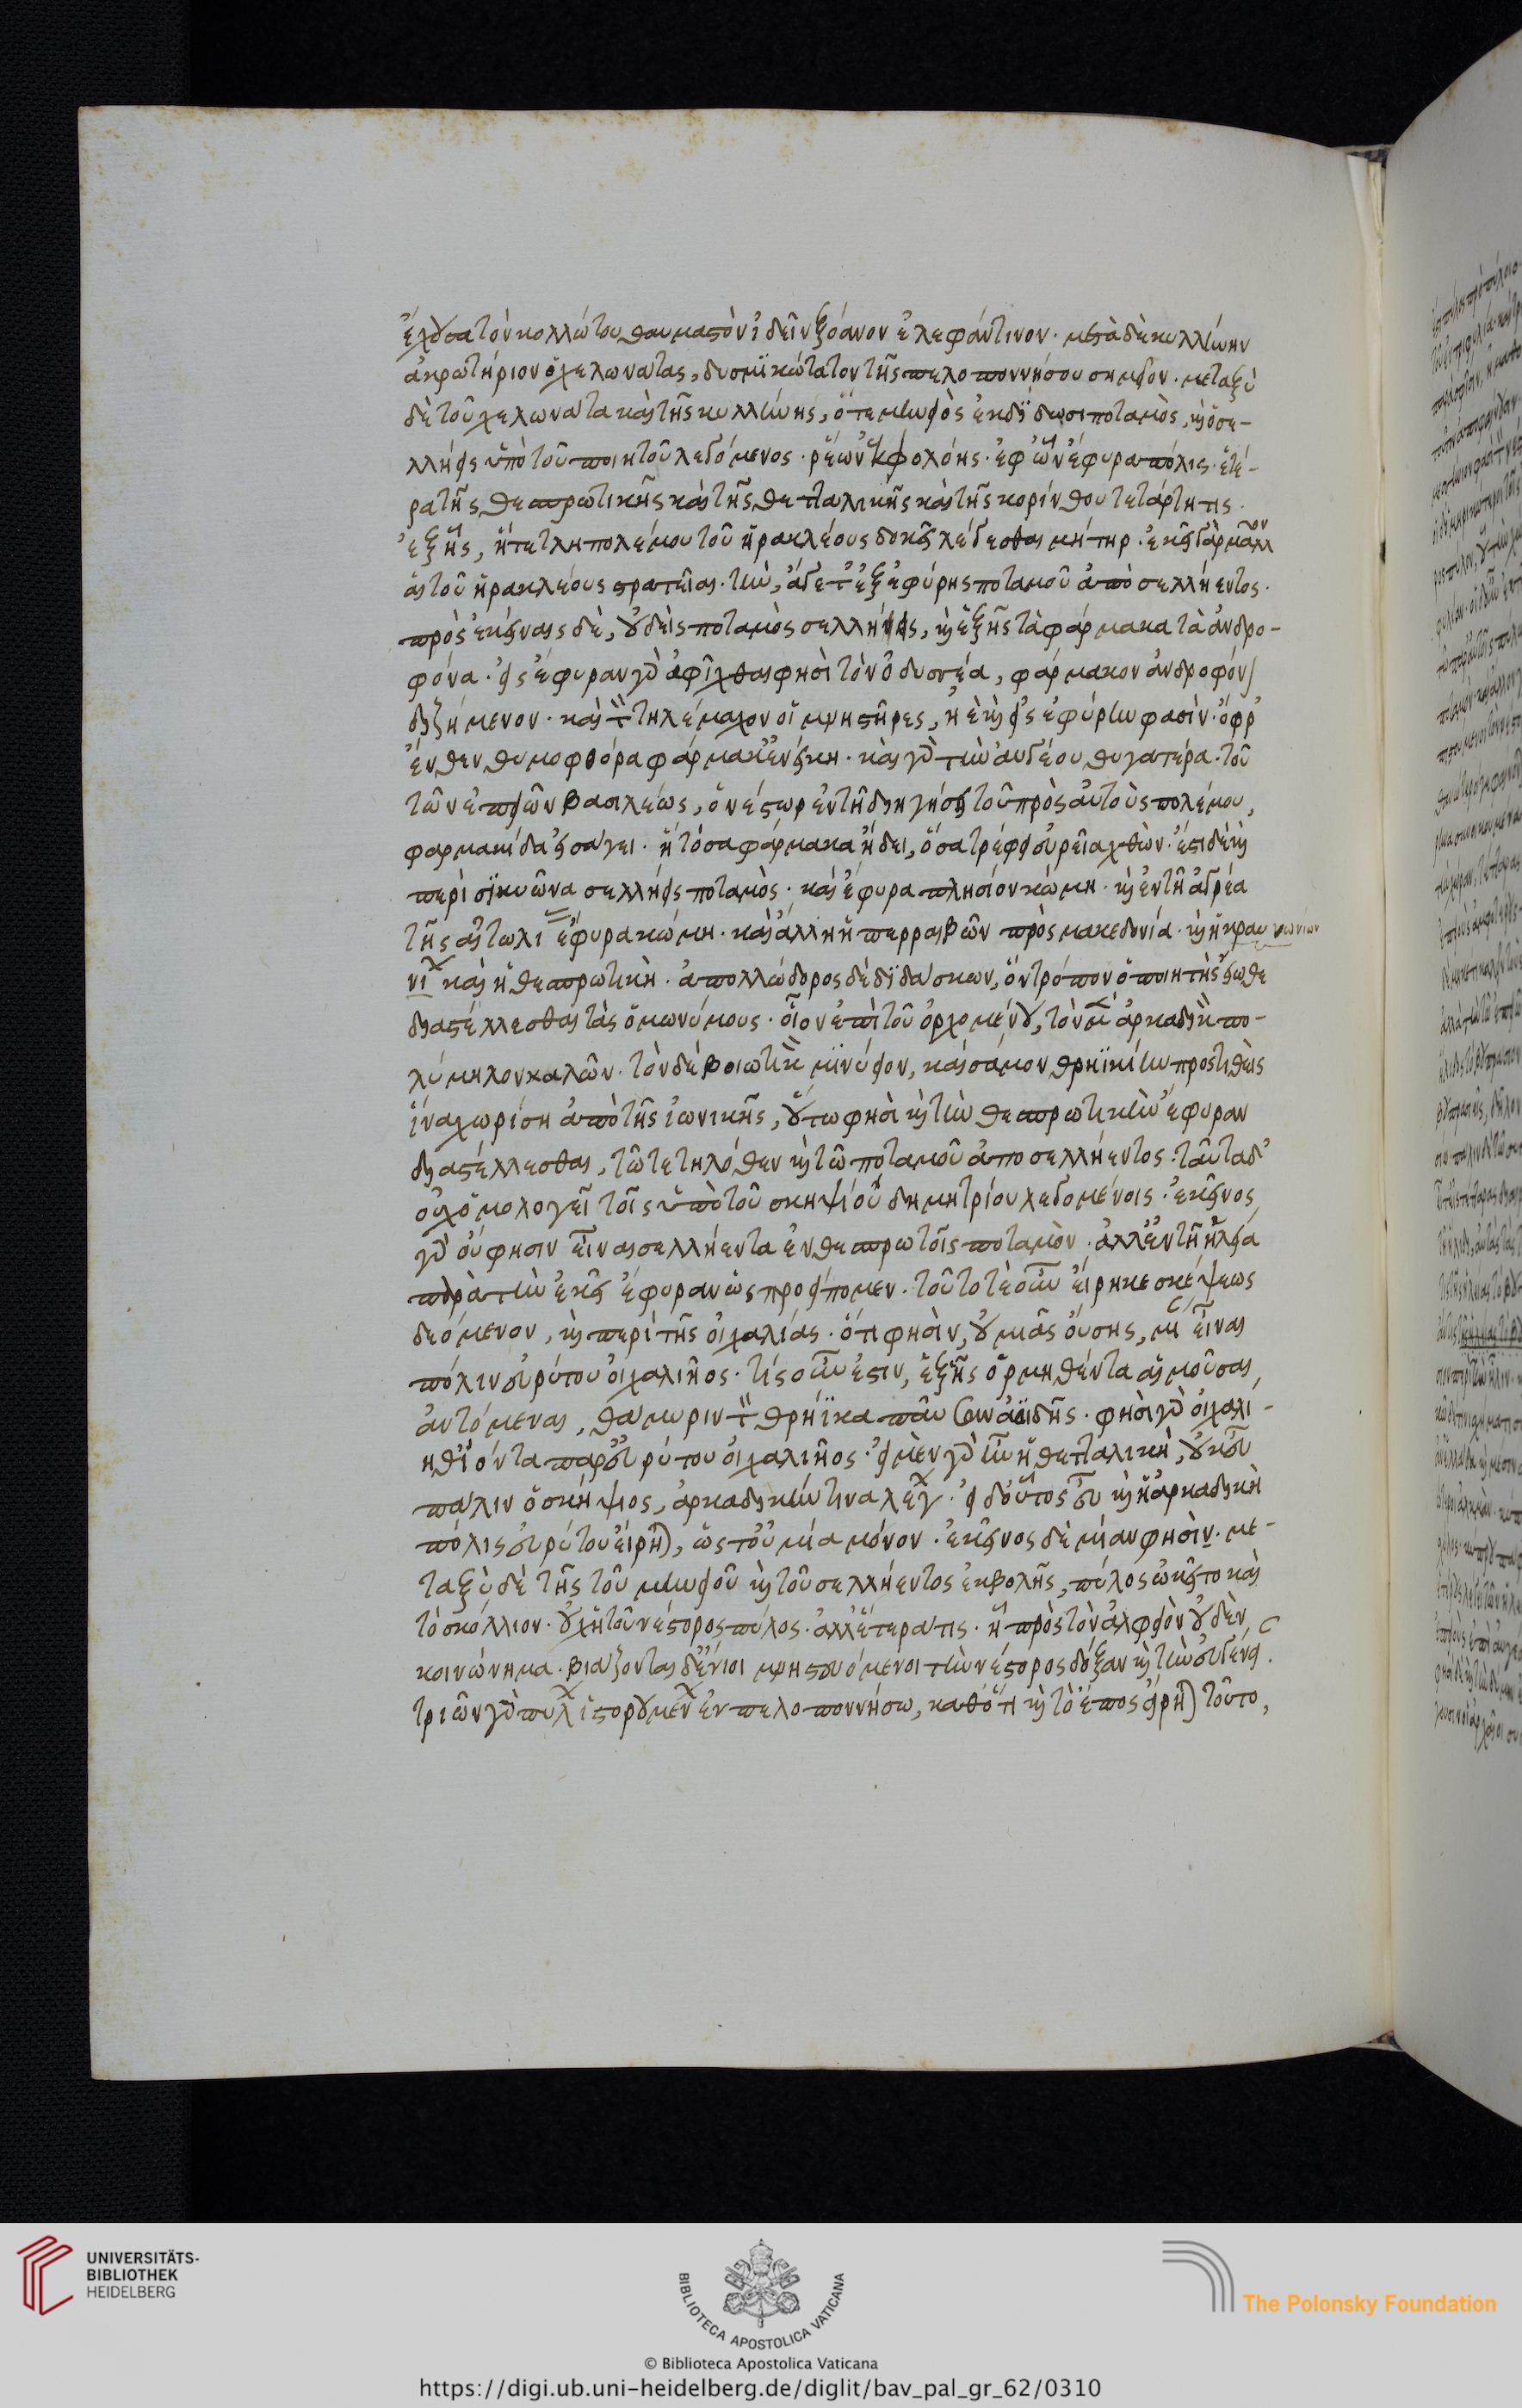 ἔχουσα τὸν κολλώτου θαυμαστὸν ἰδεῖν ξόανον ἐλεφάντινον· μετὰ δὲ κυλλήνην
ἀκρωτήριον ὁ χελωνάτας, δυσμικώτατον τῆς πελοποννήσου σημεῖον· μεταξὺ
δὲ τοῦ χελωνάτα καὶ τῆς κυλλήνης, ὅ τε πηνειὸς ἐκδίδωσι ποταμὸς, καὶ ὁ σε-
λλήεις ὑπὸ τοῦ ποιητοῦ λεγόμενος· ῥέων ἐκ φολόης· ἐφ' ᾧ ἐφύρα πόλις· ἑτέ-
ρα τῆς θεσπρωτικῆς καὶ τῆς θετταλικῆς καὶ τῆς κορίνθου τετάρτη τις·
ἐξ ἧς, ἥ τε τληπολέμου τοῦ ἡρακλέους δοκεῖ λέγεσθαι μήτηρ· ἐκεῖ γὰρ μᾶλλον
αἱ τοῦ ἡρακλέους στρατεῖαι· τὴν, ἄγετ' ἐξ ἐφύρης ποταμοῦ ἀπὸ σελλήεντος·
πρὸς ἐκείναις δὲ, οὐδεὶς ποταμὸς σελλήεις, καὶ ἐξῆς τὰ φάρμακα τὰ ἀνδρο-
φόνα· εἰς ἐφύραν γὰρ ἀφῖχθαι φησὶ τὸν ὀδυσσέα, φάρμακον ἀνδροφόνον
διζήμενον· καὶ τὸν τηλέμαχον οἱ μνηστῆρες, ἠὲ καὶ εἰς ἐφύρην φασίν· ὄφρ'
ἔνθεν θυμοφθόρα φάρμακ' ἐνείκη· καὶ γὰρ τὴν αὐγέου θυγατέρα· τοῦ
τῶν ἐπειῶν βασιλέως, ὁ νέστωρ ἐν τῆ διηγήσει τοῦ πρὸς αὐτοὺς πολέμου,
φαρμακίδα εἰσάγει· ἣ τόσα φάρμακα ἤδει, ὅσα τρέφει εὐρεῖα χθών· ἔστι δὲ καὶ
περὶ σικυῶνα σελλήεις ποταμὸς· καὶ ἐφύρα πλησίον κώμη· καὶ ἐν τῆ ἀγρέα
τῆς αἰτωλι ἐφύρα κώμη· καὶ ἄλλη ἡ περραιβῶν πρὸς μακεδονία· καὶ ἡ κραν νωνίων
νι καὶ ἡ θεσπρωτικὴ· ἀπολλόδωρος δὲ διδάσκων, ὃν τρόπον ὁ ποιητὴς εἴωθε
διαστέλλεσθαι τὰς ὁμωνύμους· οἷον ἐπὶ τοῦ ὀρχομενοῦ, τὸν μὲν ἀρκαδικὸν πο-
λύμηλον καλῶν· τὸν δὲ βοιωτικὸν μινύειον, καὶ σάμον θρηϊκίην προστιθεὶς
ἵνα χωρίση ἀπὸ τῆς ἰωνικῆς, οὕτω φησὶ καὶ τὴν θεσπρωτικὴν ἐφύραν
διαστέλλεσθαι, τῶ τε τηλόθεν καὶ τῶ ποταμοῦ ἀπο σελλήεντος· ταῦτα δ'
οὐχ ὁμολογεῖ τοῖς ὑπὸ τοῦ σκηψίου δημητρίου λεγομένοις· ἐκεῖνος
γὰρ οὔ φησιν εἶναι σελλήεντα ἐν θεσπρωτοῖς ποταμὸν· ἀλλ' ἐν τῆ ἠλεία
παρὰ τὴν ἐκεῖ ἐφύραν ὡς προείπομεν· τοῦτό τε οὖν εἴρηκε σκέψεως
δεόμενον, καὶ περὶ τῆς οἰχαλίας· ὅτι φησὶν, οὐ μιᾶς οὔσης, μίαν εἶναι
πόλιν εὐρύτου οἰχαλιῆος· τίς οὖν ἐστιν, ἐξ ἧς ὁρμηθέντα αἱ μοῦσαι,
ἀντόμεναι, θάμυριν τὸν θρήϊκα παῦσαν ἀοιδῆς· φησὶ γὰρ οἰχαλι-
ηθ' ἰόντα παρ' εὐρύτου οἰχαλιῆος· εἰ μὲν γὰρ ἦν ἡ θετταλικὴ, οὐκ εὖ
πάλιν ὁ σκήψιος, ἀρκαδικήν τινα λέγων· εἰ δ' οὗτος εὖ καὶ ἡ ἀρκαδικὴ
πόλις εὐρύτου εἴρηται, ὥστ' οὐ μία μόνον· ἐκεῖνος δὲ μίαν φησὶν· με-
ταξὺ δὲ τῆς τοῦ πηνειοῦ καὶ τοῦ σελλήεντος ἐκβολῆς, πύλος ὠκεῖτο καὶ
τὸ σκόλλιον· οὐχ ἡ τοῦ νέστορος πύλος· ἀλλ' ἑτέρα τις· ᾗ πρὸς τὸν ἀλφειὸν οὐδὲν
κοινώνημα· βιάζονται δ' ἔνιοι μνηστευόμενοι τὴν νέστορος δόξαν καὶ τὴν εὐγένειαν·
τριῶν γὰρ πύλων ἱστορουμένων ἐν πελοποννήσω, καθότι καὶ τὸ ἔπος εἴρηται τοῦτο,
UNIVERSITÄTS-
BIBLIOTHEK
HEIDELBERG
BIBLIOTECA APOSTOLICA VATICANA
The Polonsky Foundation
© Biblioteca Apostolica Vaticana
https://digi.ub.uni-heidelberg.de/diglit/bav_pal_gr_62/0310